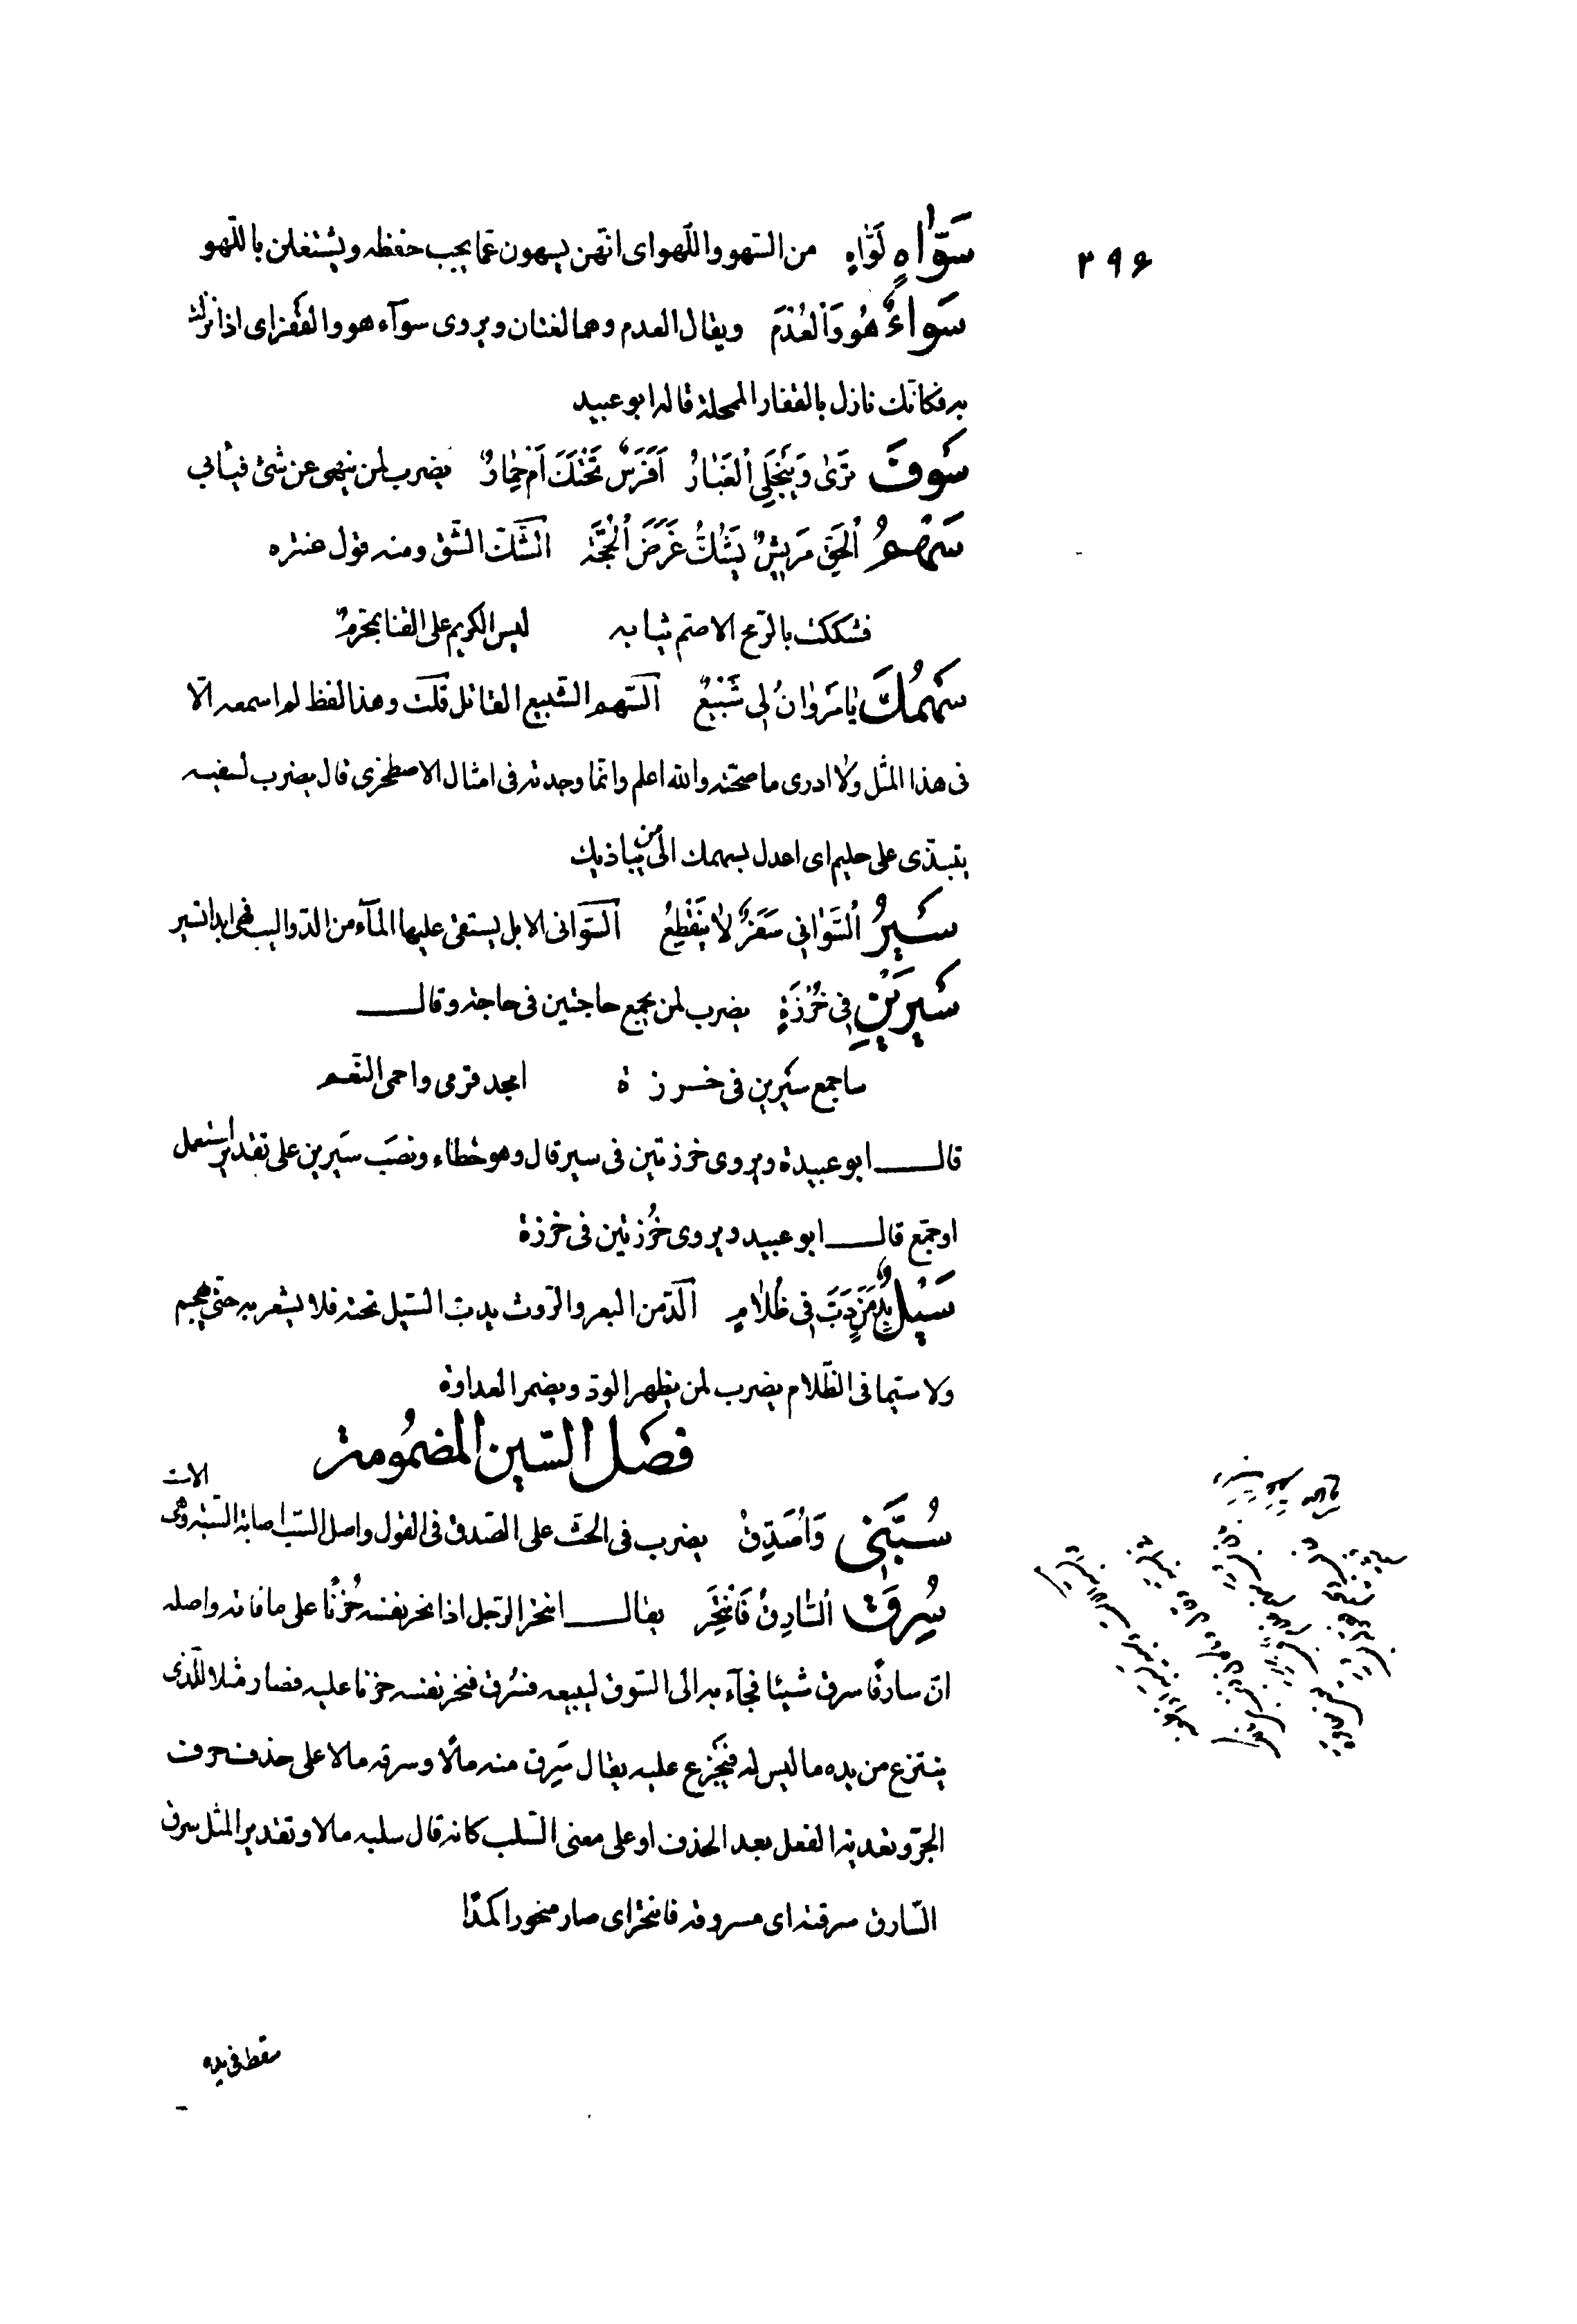 ۳۹۶
سَوّٰاهٍ لَوّٰاهٍ من السّهو واللّهو اى انّهن يسهون عمّا يجب حفظه ويشتغلن باللّهو
سَواءٌ هُو وَالعُدْمُ ويقال العدم وهما لغتان ويروى سوآء هو والقفر اى اذا نزلت
به فكانّك نازل بالقفار الممحلة قاله ابو عبيد
سَوفَ تَرىٰ وَيَنْجَلِي الغُبٰارُ اَفَرَسٌ تَحْتَكَ اَم حِمٰارٌ يضرب لمن ينهى عن شئ فيأبى
سَهْمُ الحَقِّ مَريشٌ يَشُكُّ غَرَضَ الحُجَّةِ الشّكّ الشّق ومنه قول عنتره
فشككت بالرّمح الاصمّ ثيابه ليس الكريم على القنا بمحرّمٌ
سَهْمُكَ يٰا مَرْوٰانُ لِي شَبِيعٌ السّهم الشّبيع القاتل قلت وهذا لفظ لم اسمعه الّا
فى هذا المثل ولا ادرى ما صحّته والله اعلم وانّما وجدته فى امثال الاصطخرى قال يضرب لسفيه
يتبذّى على حليم اى اعدل بسهمك الى من يباذيك
سَيْرُ السَّوٰانِي سَفَرٌ لٰا يَنْقَطِعُ السّوانى الابل يستقى عليها المآء من الدّواليب فهى ابدا تسير
سَيرَيْنِ فِي خُرْزَةٍ يضرب لمن يجمع حاجتين فى حاجة وقال
ساجمع سيرين فى خرزة امجد قومى واحمى النّعم
قال ابو عبيدة ويروى خرزتين فى سير قال وهو خطاء ونصَب سَيرين على تقدير استعمل
او جمّع قال ابو عبيد ويروى خُرزتين فى خرزة
سَيْلٌ بِدِمْنٍ دَبَّ فِي ظَلٰامٍ الدّمن البعر والرّوث يدبّ السّيل تحته فلا يشعر به حتّى يهجم
ولا سيّما فى الظّلام يضرب لمن يظهر الودّ ويضمر العداوة
فصَل السّين المضمُومة
سُبَّنِي وَاصْدِقْ يضرب فى الحثّ على الصّدق فى القول واصل السّبّ اصابة السّبّة وهى
الاست
سُرِقَ السّٰارِقُ فَانْتَحَرَ يقال انتحر الرّجل اذا نحر نفسه حُزنًا على ما فاته واصله
انّ سارقًا سرق شيئا فجآء به الى السّوق ليبيعه فسُرق فنحر نفسه حزنا عليه فصار مثلا للّذى
ينتزع من يده ما ليس له فيَجزع عليه يقال سَرِق منه مالًا وسرقه مالا على حذف حرف
الجرّ وتعدية الفعل بعد الحذف او على معنى السّلب كانه قال سلبه مالا وتقدير المثل سرق
السّارق سرقته اى مسروقه فانتحر اى صار منحورا كمدًا
سقط فى يده